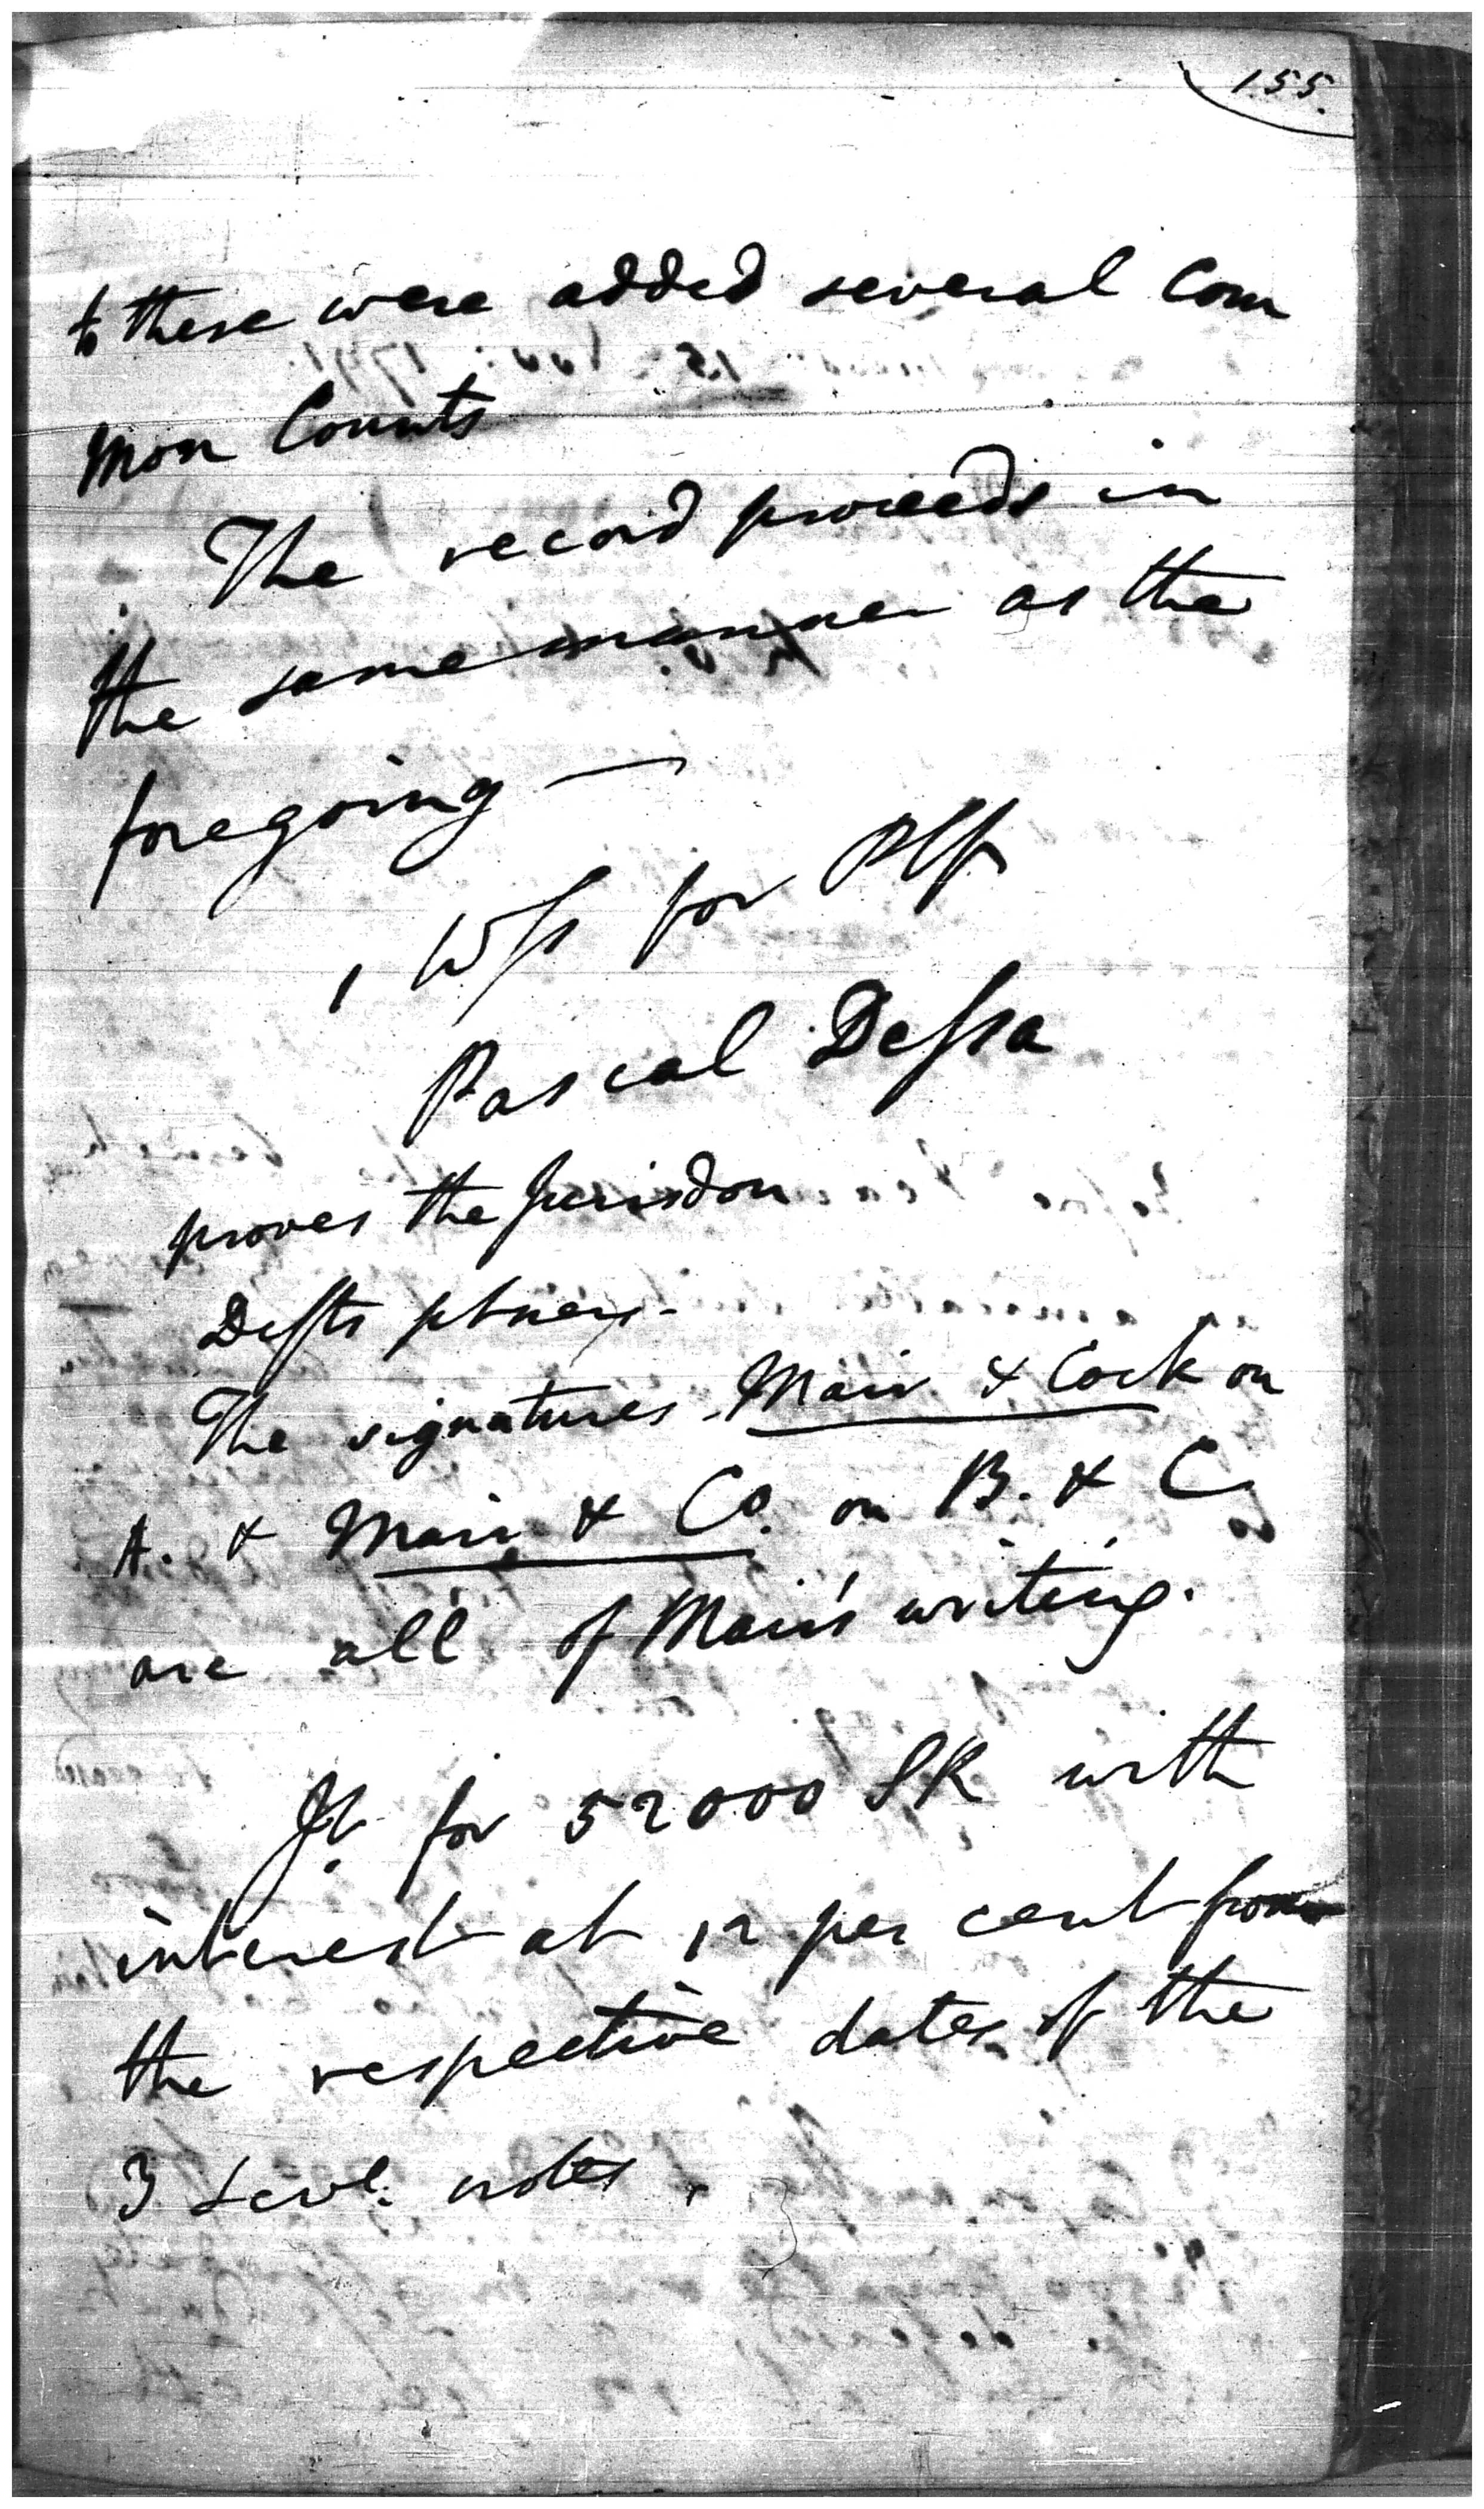 155.
to these were added several Com
mon Counts
The record proceeds in
the same manner as the
foregoing —
1 Wſs for Plff
Pascal Deſsa
proves the Jurisdon
Defts ptners -
The signatures Mair & Cock on
A. & Mair & Co. on B. & C.
are all of Mair's writing.
Jt. for 52000 SR with
interest at 12 per cent from
the respective dates of the
3 sevl. notes.